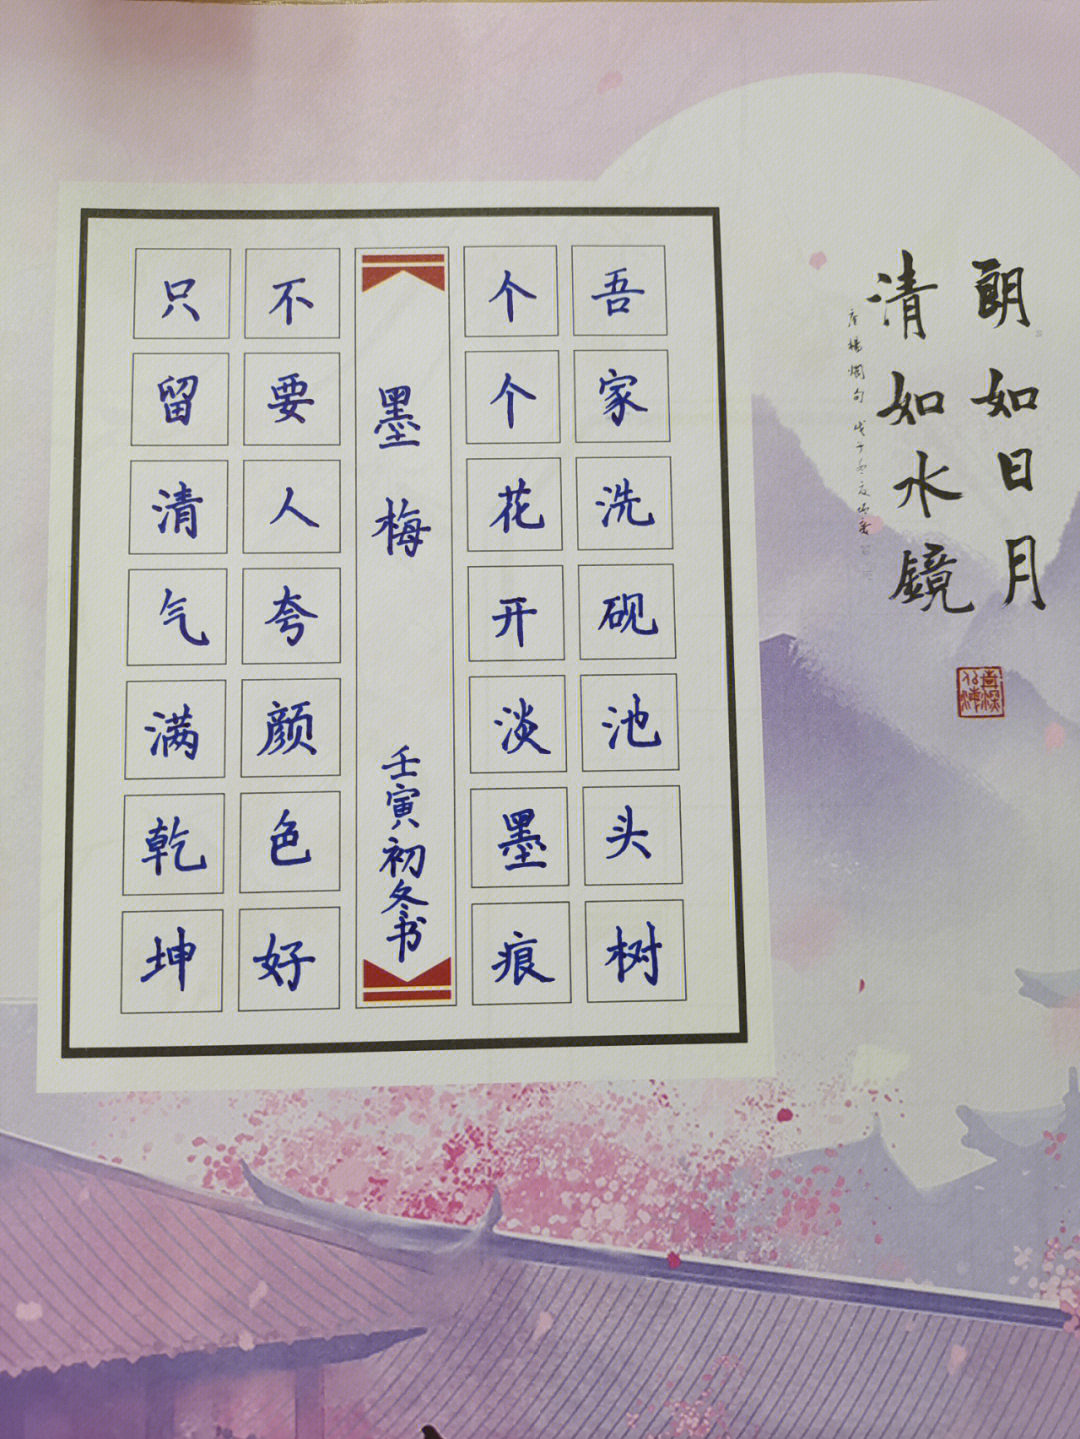 朗如日月
清如水鏡
吾家洗砚池头树
个个花开淡墨痕
墨梅
壬寅初冬书
不要人夸颜色好
只留清气满乾坤